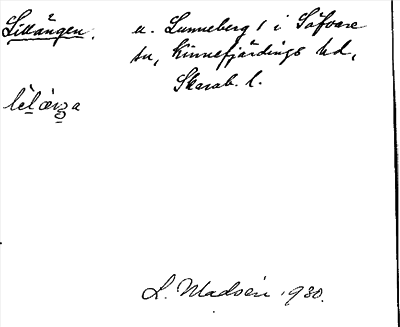 Lillängen. u. Lunneberg 1 i Säfvare
sn, Kinnefjärdings hd,
Skarab. l.
L. Madsén 1930.